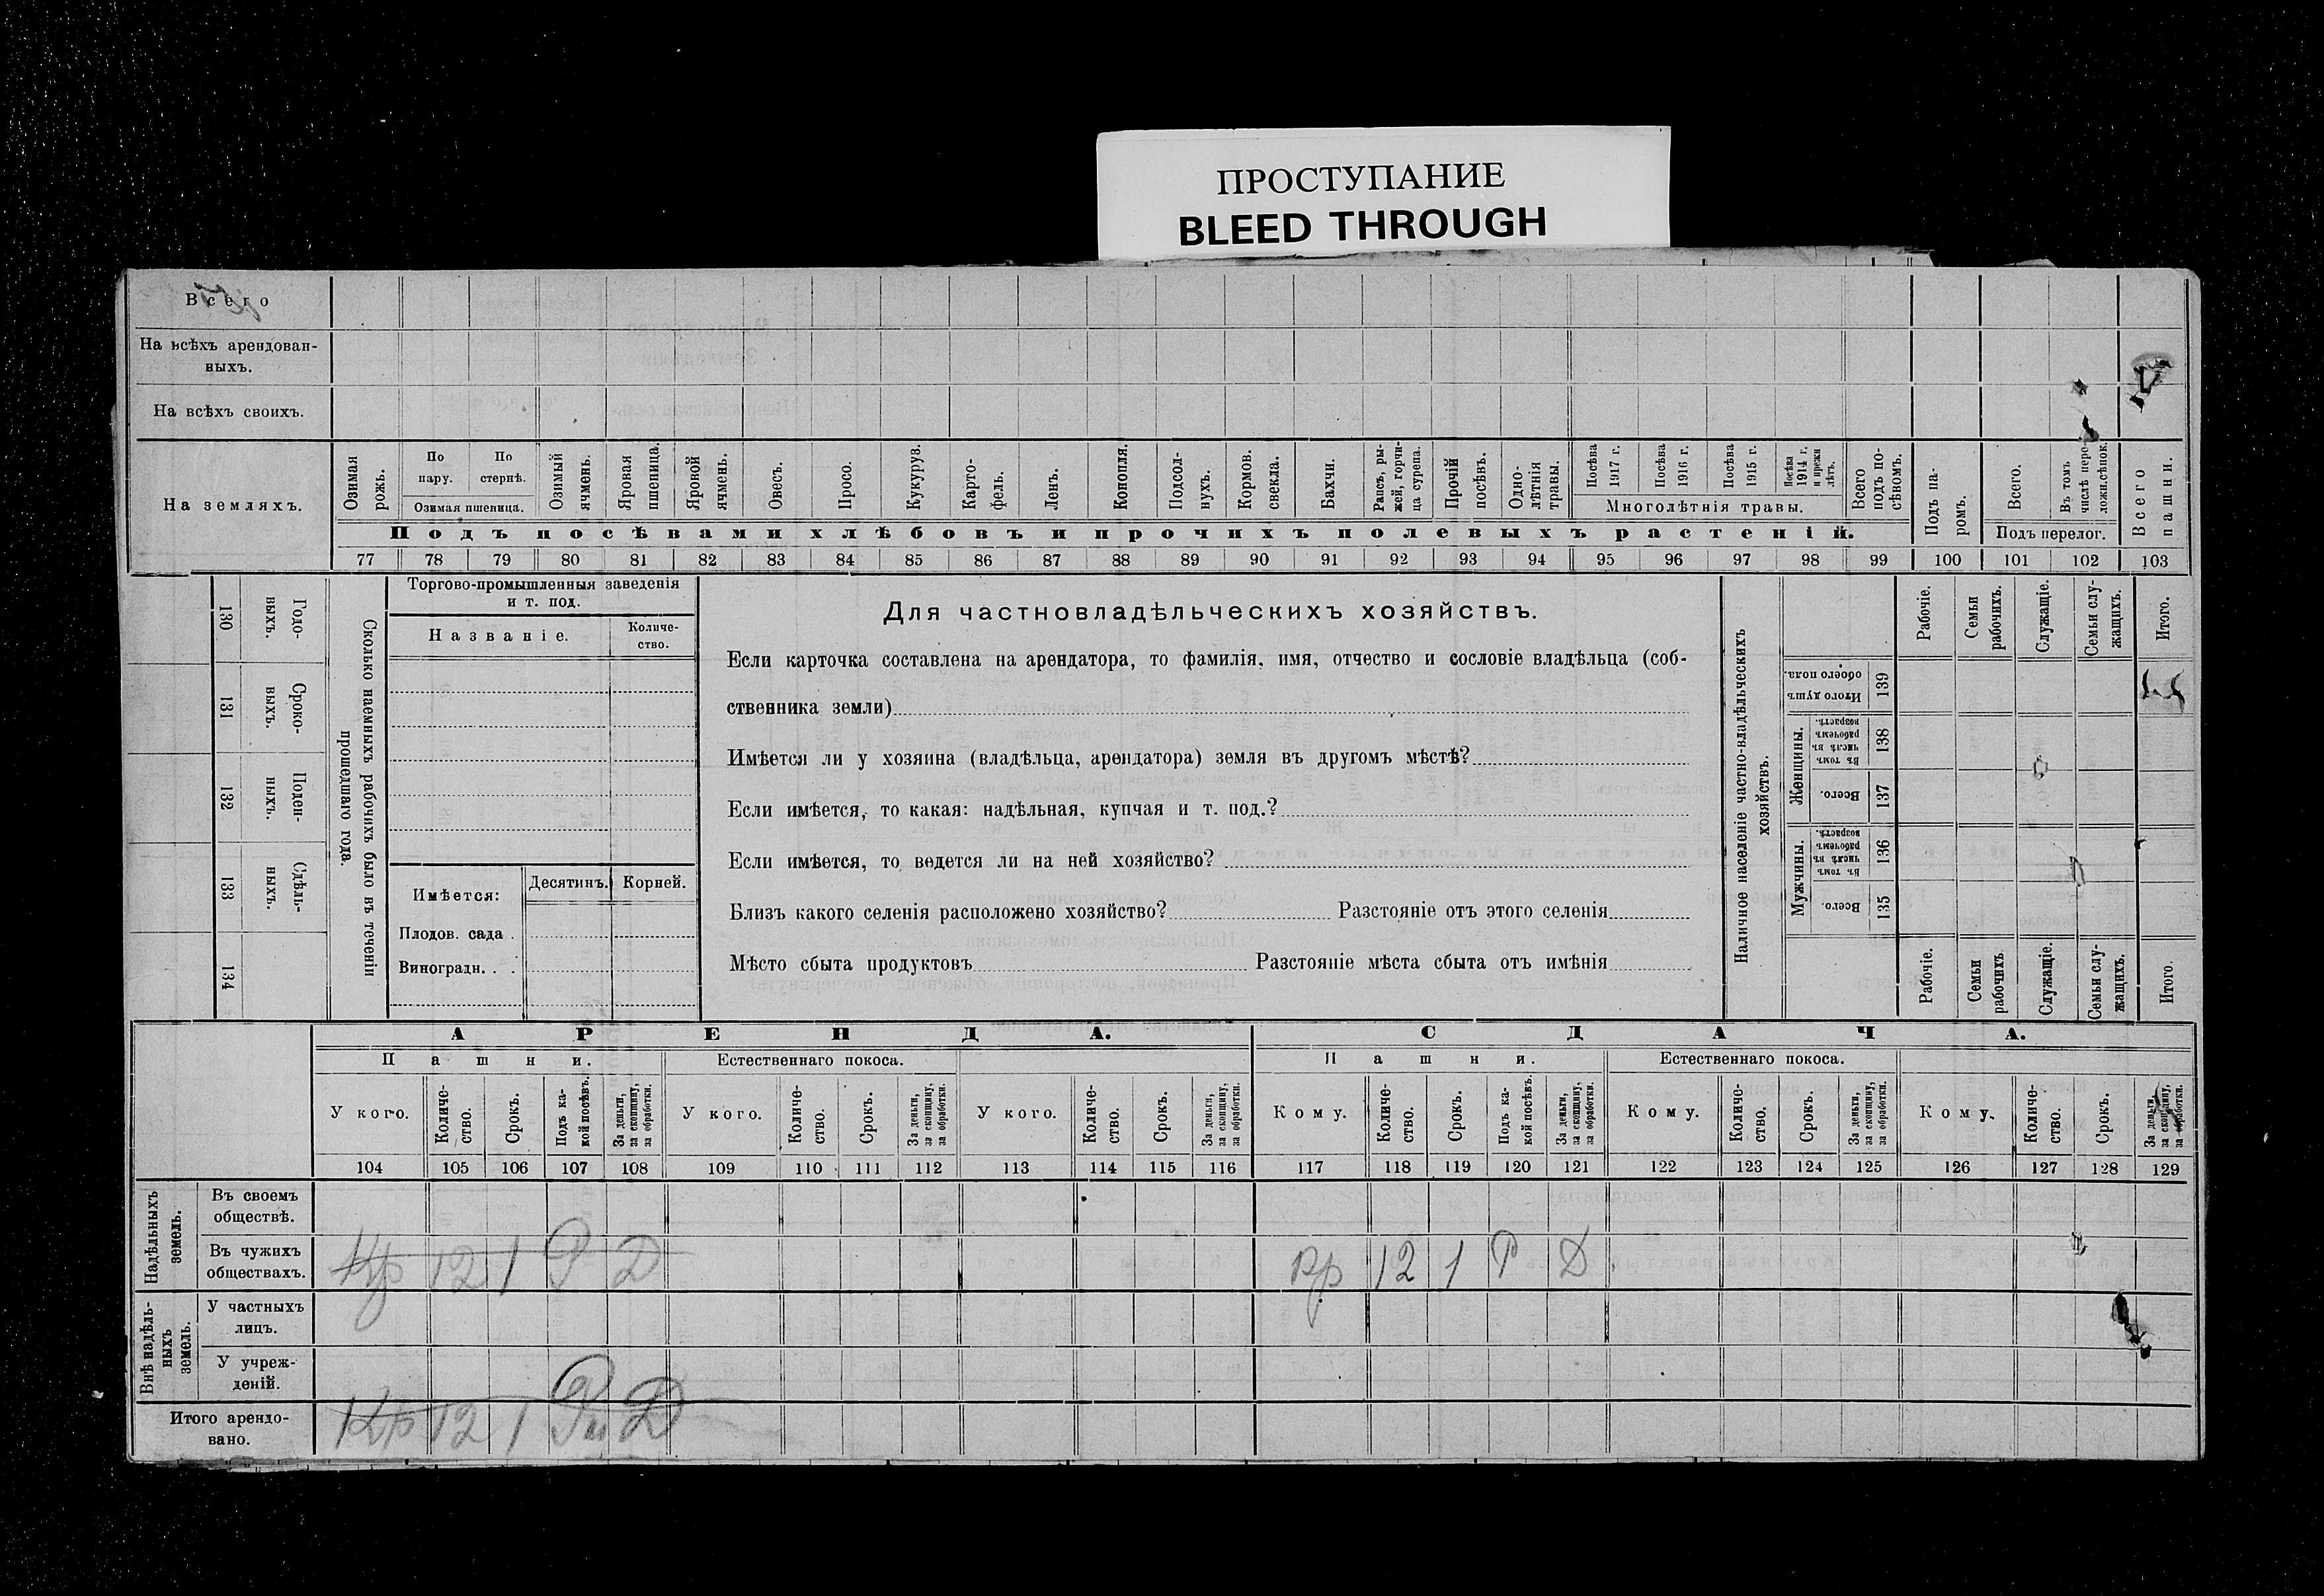 ПРОСТУПАНИЕ
BLEED THROUGH
Всего
На всѣхъ арендован-
ныхъ.
На всѣхъ своихъ.
На земляхъ.
Озимая рожь.
По пару.
По стернѣ.
Озимая пшеница.
Озимый ячмень.
Яровая пшеница.
Яровой ячмень.
Овесъ.
Просо.
Кукуруз.
Карто-
фель.
Ленъ.
Конопля.
Подсол-
нухъ.
Кормов. свекла.
Бахчи.
Рапсъ, ры-
жей, горчи-
ца сурепа.
Прочій посѣвъ.
Одно-
лѣтнія травы.
Посѣва 1917 г.
Посѣва 1916 г.
Посѣва 1915 г.
Посѣва 1914 г. и прежн лѣтъ.
Многолѣтнія травы.
Всего подъ по-
сѣвомъ.
Подъ па-
ромъ.
Всего.
Въ томъ числѣ пере-
ложн.сѣнок.
Подъ перелог.
Всего пашни.
Подъ посѣвами хлѣбовъ и прочихъ полевыхъ растеній.
77 78 79 80 81 82 83 84 85 86 87 88 89 90 91 92 93 94 95 96 97 98 99 100 101 102 103
130 Годо-
выхъ.
131 Сроко-
выхъ.
132 Поден-
ныхъ.
133 Сдѣль-
ныхъ.
134
Сколько наемныхъ рабочихъ было въ теченіи
прошедшаго года.
Торгово-промышленныя заведенія
и т. под.
Названіе.
Количе-
ство.
Имѣется:
Десятинъ.
Корней.
Плодов. сада .
Виноградн. . .
Для частновладѣльческихъ хозяйствъ.
Если карточка составлена на арендатора, то фамилія, имя, отчество и сословіе владѣльца (соб-
ственника земли)
Имѣется ли у хозяина (владѣльца, арендатора) земля въ другомъ мѣстѣ?
Если имѣется, то какая: надѣльная, купчая и т. под.?
Если имѣется, то ведется ли на ней хозяйство?
Близъ какого селенія расположено хозяйство? Разстояніе отъ этого селенія
Мѣсто сбыта продуктовъ Разстояніе мѣста сбыта отъ имѣнія
Наличное населеніе частно-владѣльческихъ
хозяйствъ.
Рабочіе.
Семьи рабочихъ.
Служащіе.
Семьи слу-
жащихъ.
Итого.
Итого душъ обоего пола. 139
Женщины.
Въ томъ числѣ въ рабочемъ возрастѣ. 138
Всего. 137
Мужчины.
Въ томъ числѣ въ рабочемъ возрастѣ. 136
Всего. 135
Рабочіе.
Семьи рабочихъ.
Служащіе.
Семьи слу-
жащихъ.
Итого.
АРЕНДА.
СДАЧА.
Пашни.
Естественнаго покоса.
Пашни.
Естественнаго покоса.
У кого.
Количе-
ство.
Срокъ.
Подъ ка-
кой посѣвъ.
За деньги, за скопщину, за обработки.
У кого.
Количе-
ство.
Срокъ.
За деньги, за скопщину, за обработки.
У кого.
Количе-
ство.
Срокъ.
За деньги, за скопщину, за обработки.
Кому.
Количе-
ство.
Срокъ.
Подъ ка-
кой посѣвъ.
За деньги, за скопщину, за обработки.
Кому.
Количе-
ство.
Срокъ.
За деньги, за скопщину, за обработки.
Кому.
Количе-
ство.
Срокъ.
За деньги, за скопщину, за обработки.
104 105 106 107 108 109 110 111 112 113 114 115 116 117 118 119 120 121 122 123 124 125 126 127 128 129
Надѣльныхъ
земель.
Въ своемъ
обществѣ.
Въ чужихъ
обществахъ.
Кр 12 1 Р Д
кр 12 1 Р Д
Внѣ надѣль-
ныхъ
земель.
У частныхъ
лицъ.
У учреж-
деній.
Итого арендо-
вано.
Кр 12 1 Д